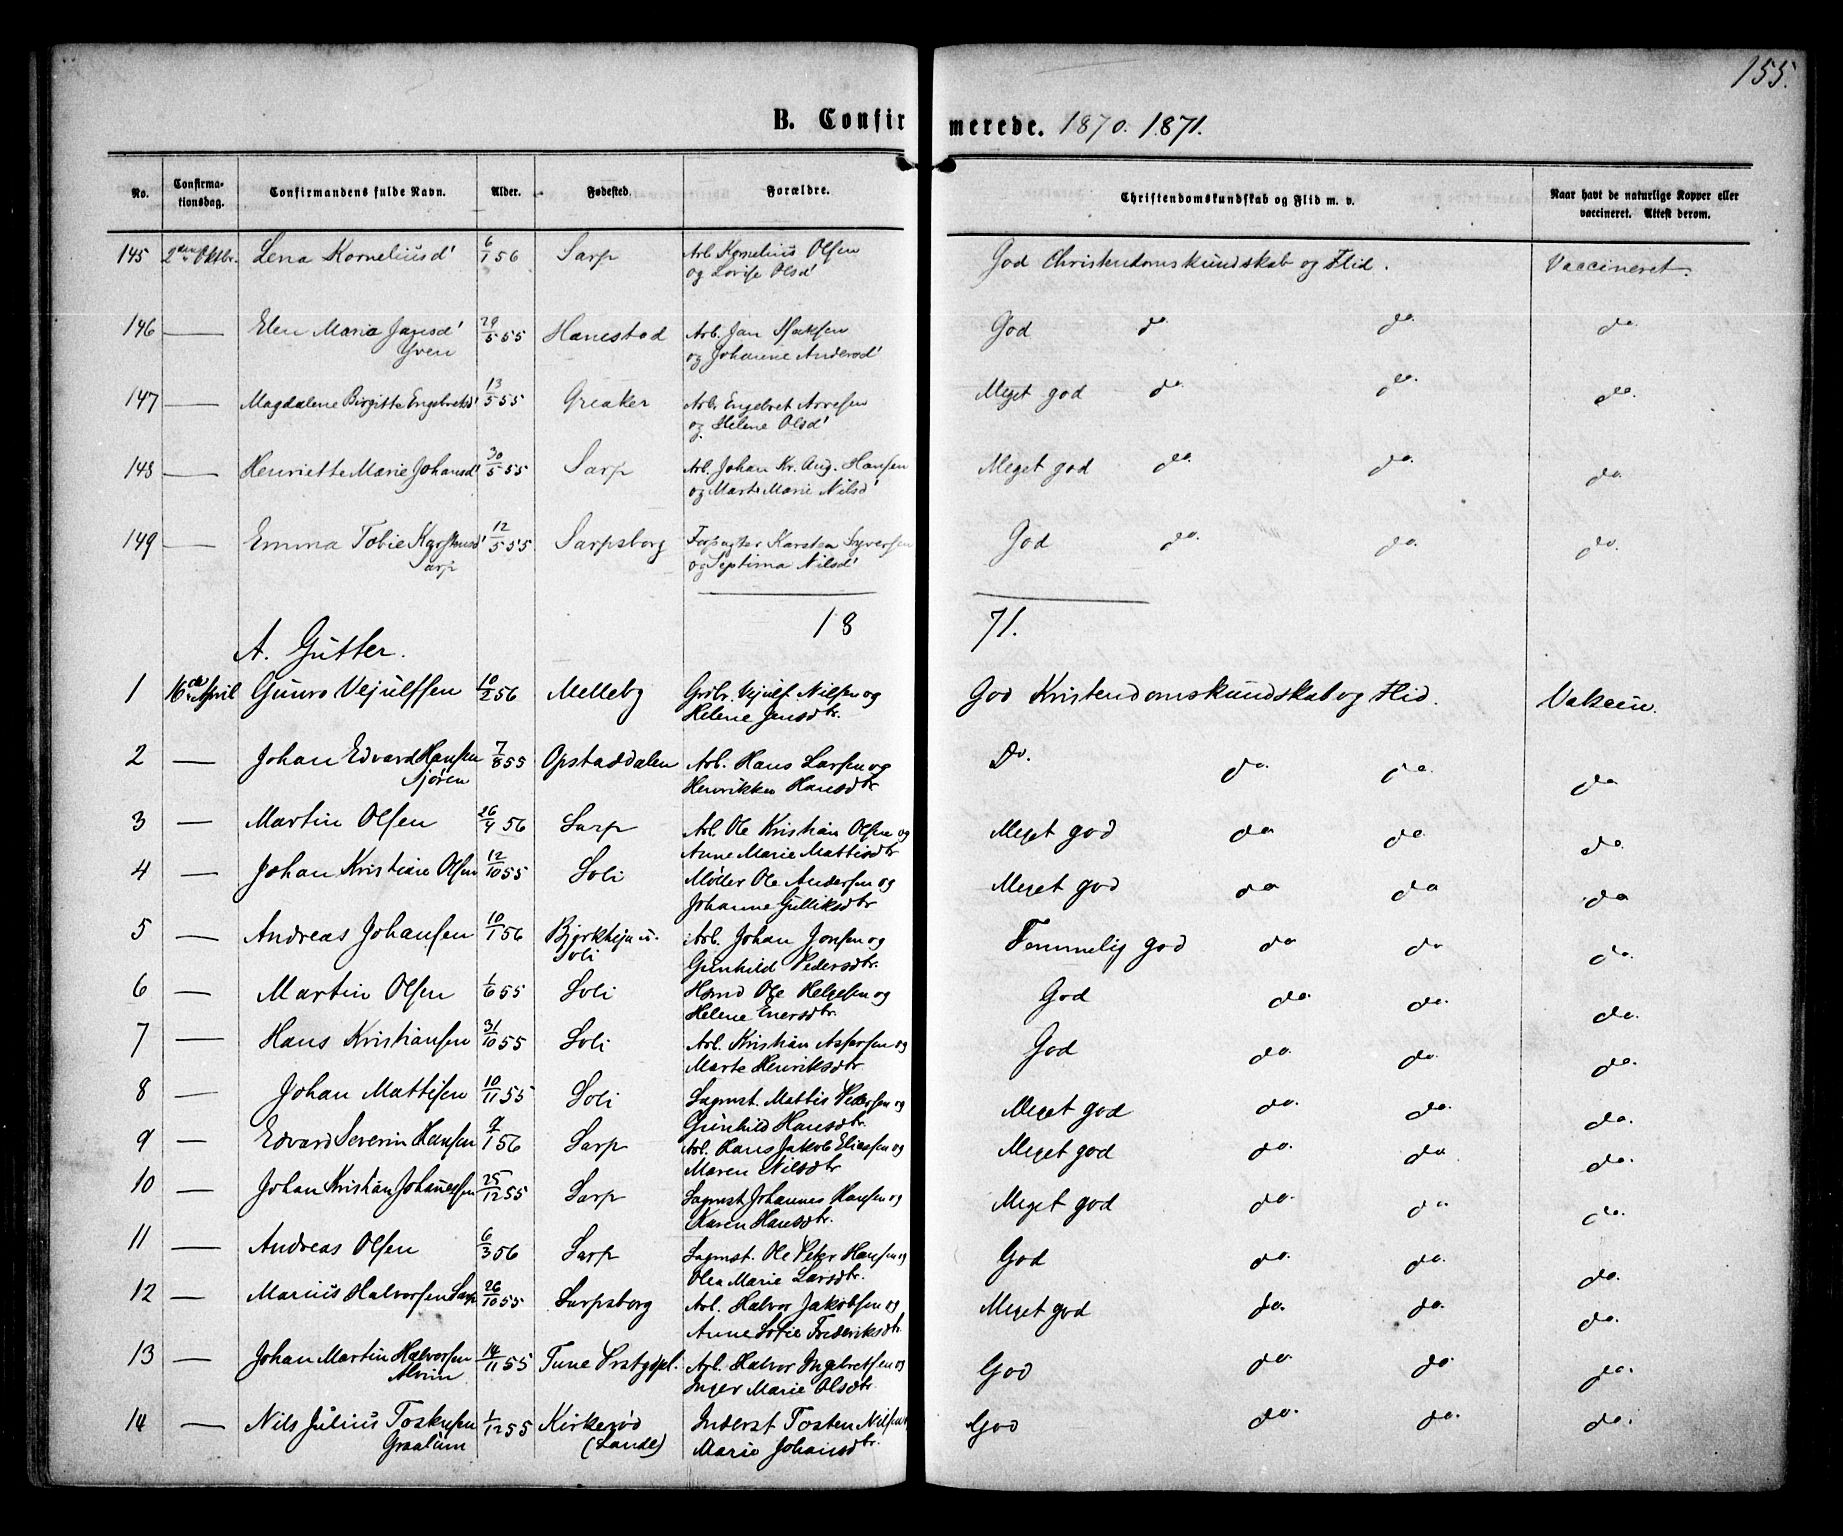 155.
B. Confirmerede. 1870. 1871.
No. Confirmationsdag. Confirmandens fulde Navn. Alder. Fødested. Forældre. Christendomskundskab og Flid m. v. Naar havt de naturlige Kopper eller vaccineret. Attest derom.
145 2den Oktbr. Lena Korneliusd' 6/1 56 Sarp Arb. Kornelius Olsen God Christendomskundskab og Flid. Vaccineret.
og Lovise Olsd'
146 — Elen Maria Jansd' 29/5 55 Hanestad Arb. Jan Isaksen God do. do. do.
Yven og Johanne Andersd'
147 — Magdalene Birgitte Engebretsd' 13/5 55 Greaker Arb. Engebret Arnesen Meget god do. do. do.
og Helene Olsd'
148 — Henriette Marie Johansd' 30/5 55 Sarp Arb. Johan Kr. Aug. Hansen Meget god do. do. do.
og Marte Marie Nilsd'
149 — Emma Tobie Karstensd' 12/5 55 Sarpsborg Forpagter Karsten Syversen God do. do. do.
Sarp og Septima Nilsd'
18 71.
A. Gutter.
1 16de April Gunro Vejulfsen 10/2 56 Melleby Grbr. Vejulf Nilsen og God Kristendomskundskab og Flid. Vakcin.
Helene Jensdtr.
2 — Johan Edvard Hansen 7/8 55 Opstaddalen Arb. Hans Larsen og Do. do. do. do
Sjøren Henrikke Hansdtr
3 — Martin Olsen 26/4 56 Sarp Arb. Ole Kristian Olsen og Meget god do do. do.
Anne Marie Mattisdtr
4 — Johan Kristian Olsen 12/10 55 Soli Møller Ole Andersen og Meget god do do do
Johanne Gulliksdtr
5 — Andreas Johansen 10/1 56 Bjørkhejn u. Arb. Johan Jonsen og Temmelig god do do do.
Soli Gunhild Pedersdtr.
6 — Martin Olsen 1/6 55 Soli Hsmd Ole Helgesen og God do. do. do.
Helene Enersdtr.
7 — Hans Kristiansen 31/10 55 Soli Arb. Kristian Asersen og God do. do. do.
Marte Henriksdtr
8 — Johan Mattisen 10/11 55 Soli Sagmst. Mattis Pedersen og Meget god do. do. do.
Gunhild Hansdtr.
9 — Edvard Severin Hansen 9/1 56 Sarp Arb. Hans Jakob Eliassen og Meget god do. do do.
Maren Nilsdtr
10 — Johan Kristian Johanessen 25/12 55 Sarp Sagmst Johannes Hansen og Meget god do. do do.
Karen Hansdtr.
11 — Andreas Olsen 6/3 56 Sarp Sagmst. Ole Peter Hansen og God do. do. do.
Olea Marie Larsdtr.
12 — Marius Halvorsen Sarp 26/10 55 Sarpsborg Arb. Halvor Jakobsen og Meget god do. do. do.
Anne Sofie Frederiksdtr.
13 — Johan Martin Halvorsen 14/11 55 Tune Prstgjpl. Arb. Halvor Ingebretsen og God do. do. do.
Alvim Inger Marie Olsdtr.
14 — Nils Julius Tostensen 1/12 55 Kirkerød Inderst Tosten Nilsen God do. do. do.
Graalum (Lande) Marie Johansdtr.